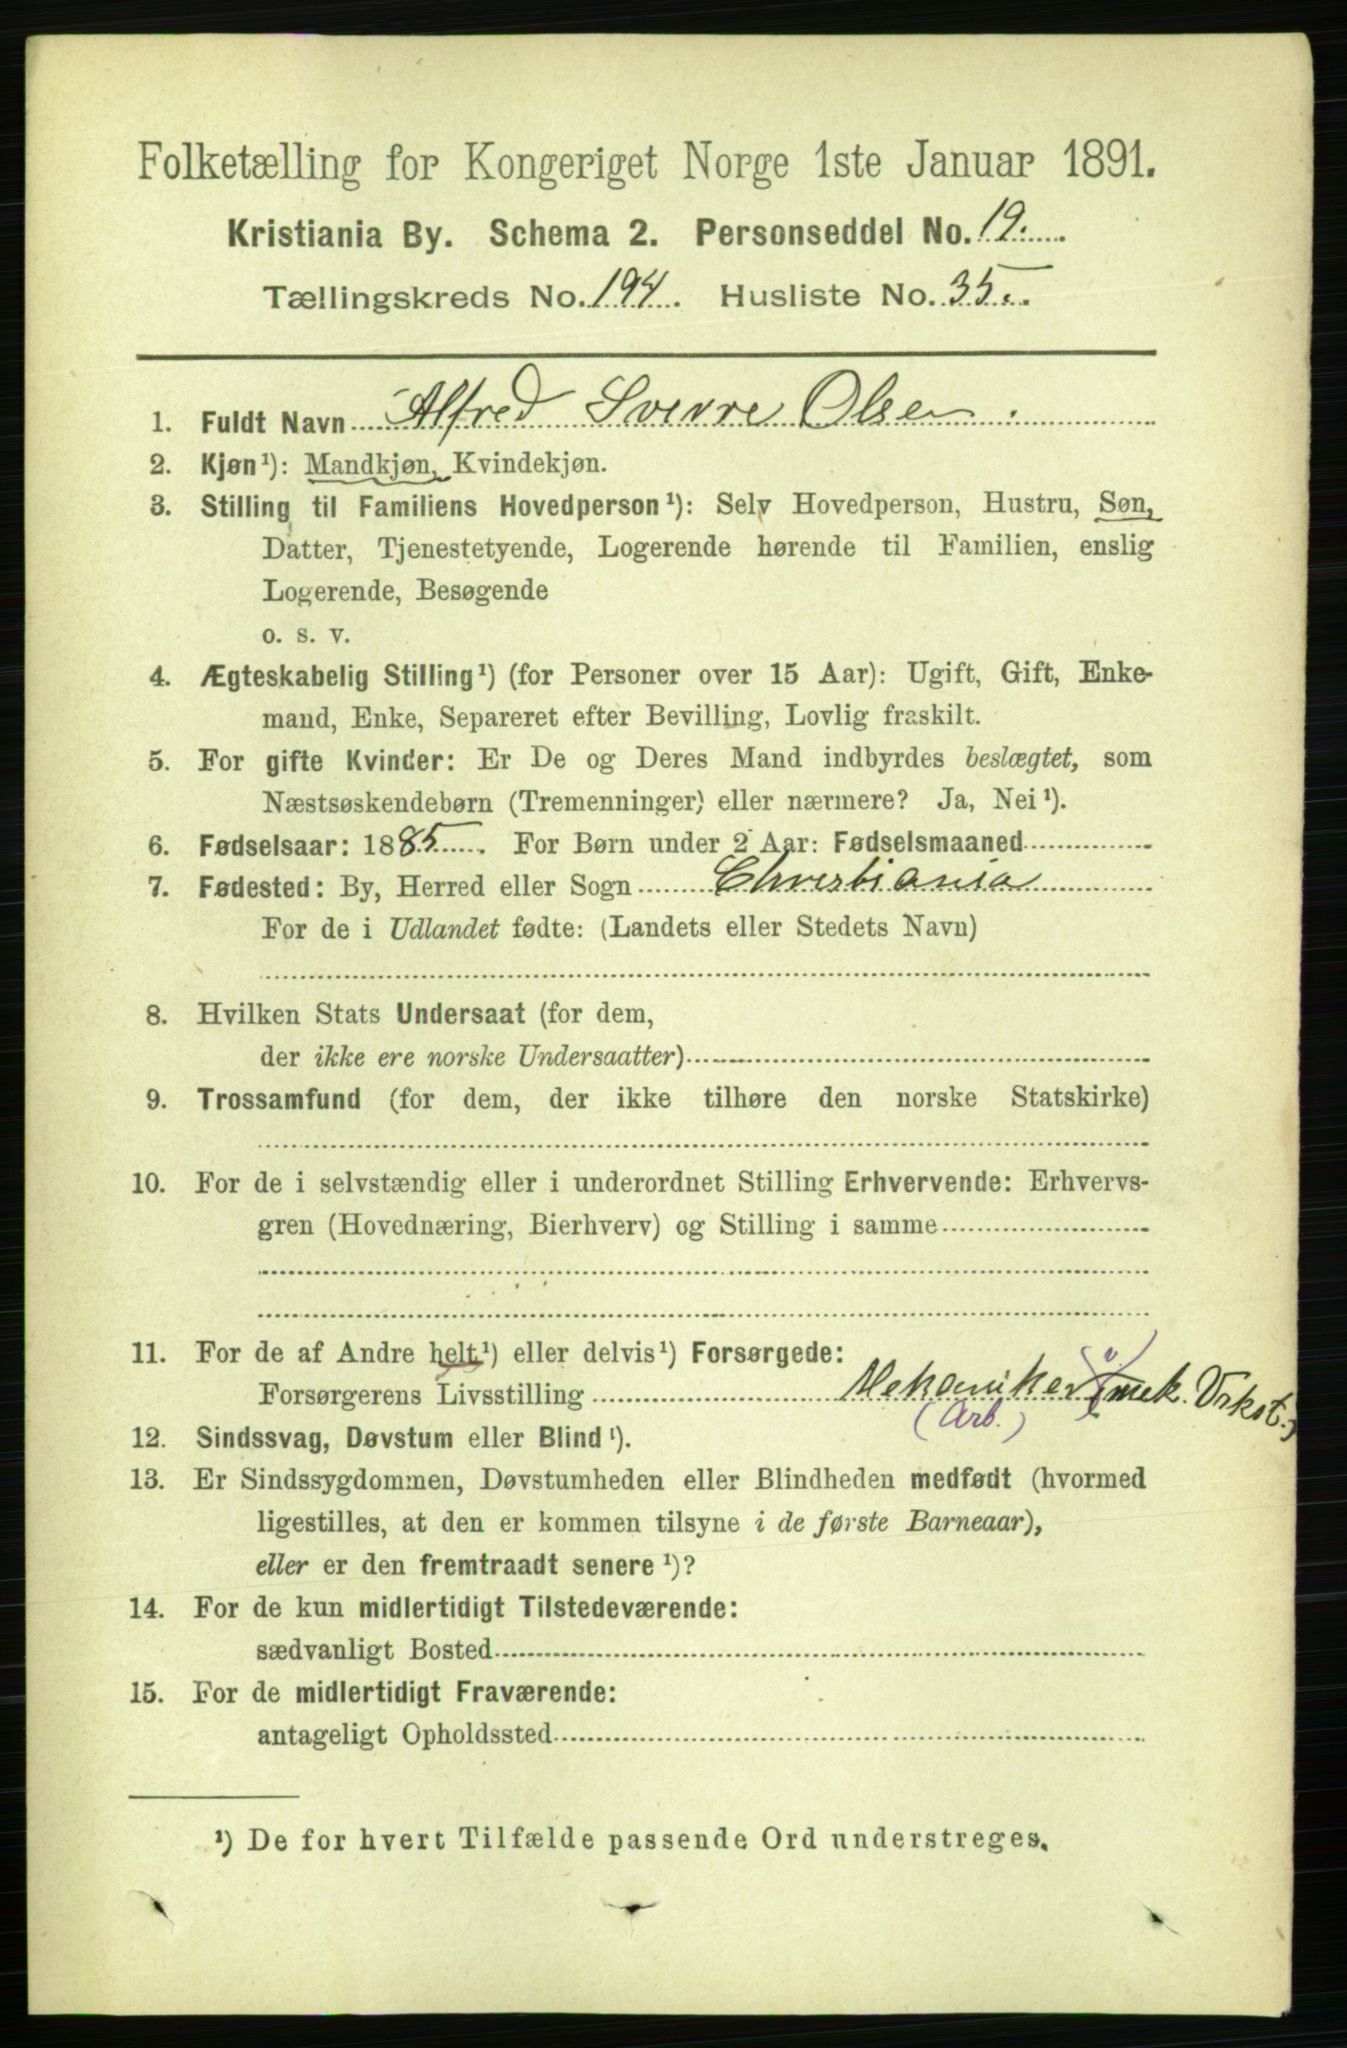 Folketælling for Kongeriget Norge 1ste Januar 1891.
Kristiania By. Schema 2. Personseddel No. 19.
Tællingskreds No. 194. Husliste No. 35.
1. Fuldt Navn Alfred Sverre Olsen.
2. Kjøn¹): Mandkjøn, Kvindekjøn.
3. Stilling til Familiens Hovedperson¹): Selv Hovedperson, Hustru, Søn,
Datter, Tjenestetyende, Logerende hørende til Familien, enslig
Logerende, Besøgende
o. s. v.
4. Ægteskabelig Stilling¹) (for Personer over 15 Aar): Ugift, Gift, Enke-
mand, Enke, Separeret efter Bevilling, Lovlig fraskilt.
5. For gifte Kvinder: Er De og Deres Mand indbyrdes beslægtet, som
Næstsøskendebørn (Tremenninger) eller nærmere? Ja, Nei¹).
6. Fødselsaar: 1885. For Børn under 2 Aar: Fødselsmaaned
7. Fødested: By, Herred eller Sogn Christiania
For de i Udlandet fødte: (Landets eller Stedets Navn)
8. Hvilken Stats Undersaat (for dem,
der ikke ere norske Undersaatter)
9. Trossamfund (for dem, der ikke tilhøre den norske Statskirke)
10. For de i selvstændig eller i underordnet Stilling Erhvervende: Erhvervs-
gren (Hovednæring, Bierhverv) og Stilling i samme
11. For de af Andre helt¹) eller delvis¹) Forsørgede:
Forsørgerens Livsstilling Mekaniker (mek. Vrkst.)
(Arb.)
12. Sindssvag, Døvstum eller Blind¹).
13. Er Sindssygdommen, Døvstumheden eller Blindheden medfødt (hvormed
ligestilles, at den er kommen tilsyne i de første Barneaar),
eller er den fremtraadt senere¹)?
14. For de kun midlertidigt Tilstedeværende:
sædvanligt Bosted
15. For de midlertidigt Fraværende:
antageligt Opholdssted
¹) De for hvert Tilfælde passende Ord understreges.